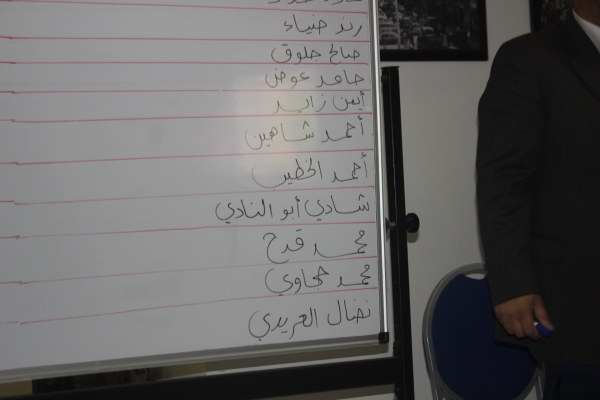 رند ضياء
صالح جلوق
حامد عوض
أيمن زايد
أحمد شاهين
أحمد الخطيب
شادي أبو النادي
محمد قدح
محمد حجاوي
نضال العريدي